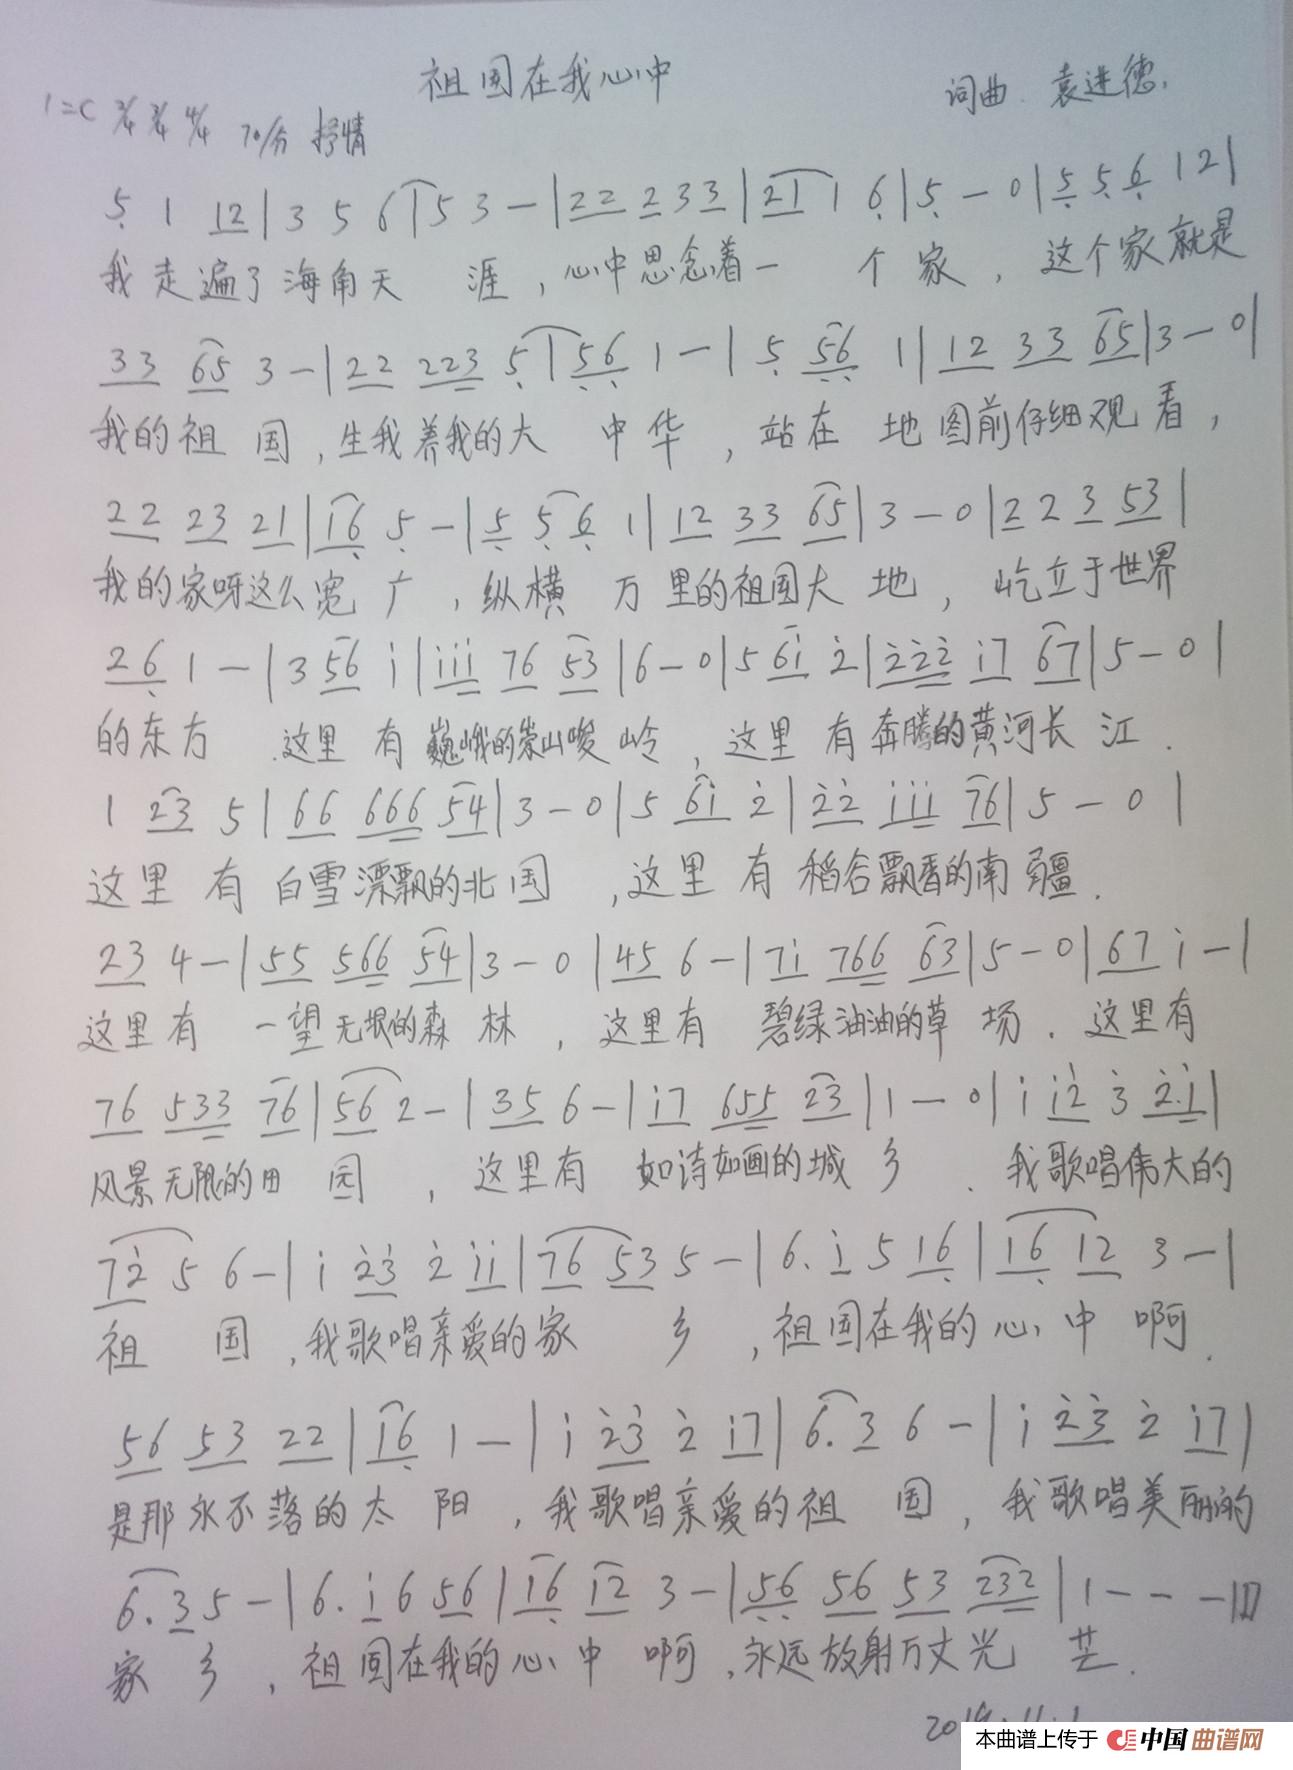 祖国在我心中
词曲 袁进德.
1=C 2/4 3/4 4/4 70/分 抒情
5 1 12|3 5 6 1|5 3 -|22 2 3 3|21 1 6|5 - 0|5 5 6 1 2|
我走遍了海角天 涯,心中思念着一 个家,这个家就是
33 65 3 -|22 223 5 1|56 1 -|5 56 1|12 33 65|3 - 0|
我的祖国,生我养我的大 中华,站在 地图前仔细观看,
22 23 21|16 5 -|5 5 6 1|12 33 65|3 - 0|2 2 3 53|
我的家呀这么宽 广,纵横 万里的祖国大 地,屹立于世界
26 1 -|3 56 i|iii 76 53|6 - 0|5 6i 2|222 i7 67|5 - 0|
的东方.这里 有巍峨的崇山峻 岭,这里 有奔腾的黄河长 江.
1 23 5|66 666 54|3 - 0|5 6i 2|22 iii 76|5 - 0|
这里 有 白雪漂飘的北 国,这里 有 稻谷飘香的南 疆.
23 4 -|55 566 54|3 - 0|45 6 -|7i 766 63|5 - 0|67 i -|
这里有 一望无垠的森 林,这里有 碧绿油油的草 场.这里有
76 533 76|56 2 -|35 6 -|i7 655 23|1 - 0|i i2 3 2.i|
风景无限的田 园,这里有 如诗如画的城 乡.我歌唱伟大的
72 5 6 -|i 23 2 ii|76 53 5 -|6. i 5 16|16 12 3 -|
祖 国,我歌唱亲爱的家 乡,祖国在我的心中 啊.
56 53 22|16 1 -|i 23 2 i7|6. 3 6 -|i 23 2 i7|
是那永不落的太 阳,我歌唱亲爱的祖 国,我歌唱美丽的
6. 3 5 -|6. i 6 56|16 12 3 -|56 56 53 232|1 - - -||
家 乡,祖国在我的心中 啊,永远放射万丈光 芒.
本曲谱上传于 中国曲谱网